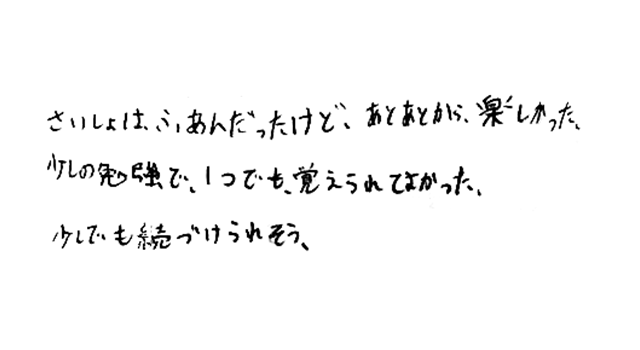 さいしょは、ふあんだったけど、あとあとから、楽しかった、
少しの勉強で、1つでも、覚えられてよかった、
少しでも続づけられそう、